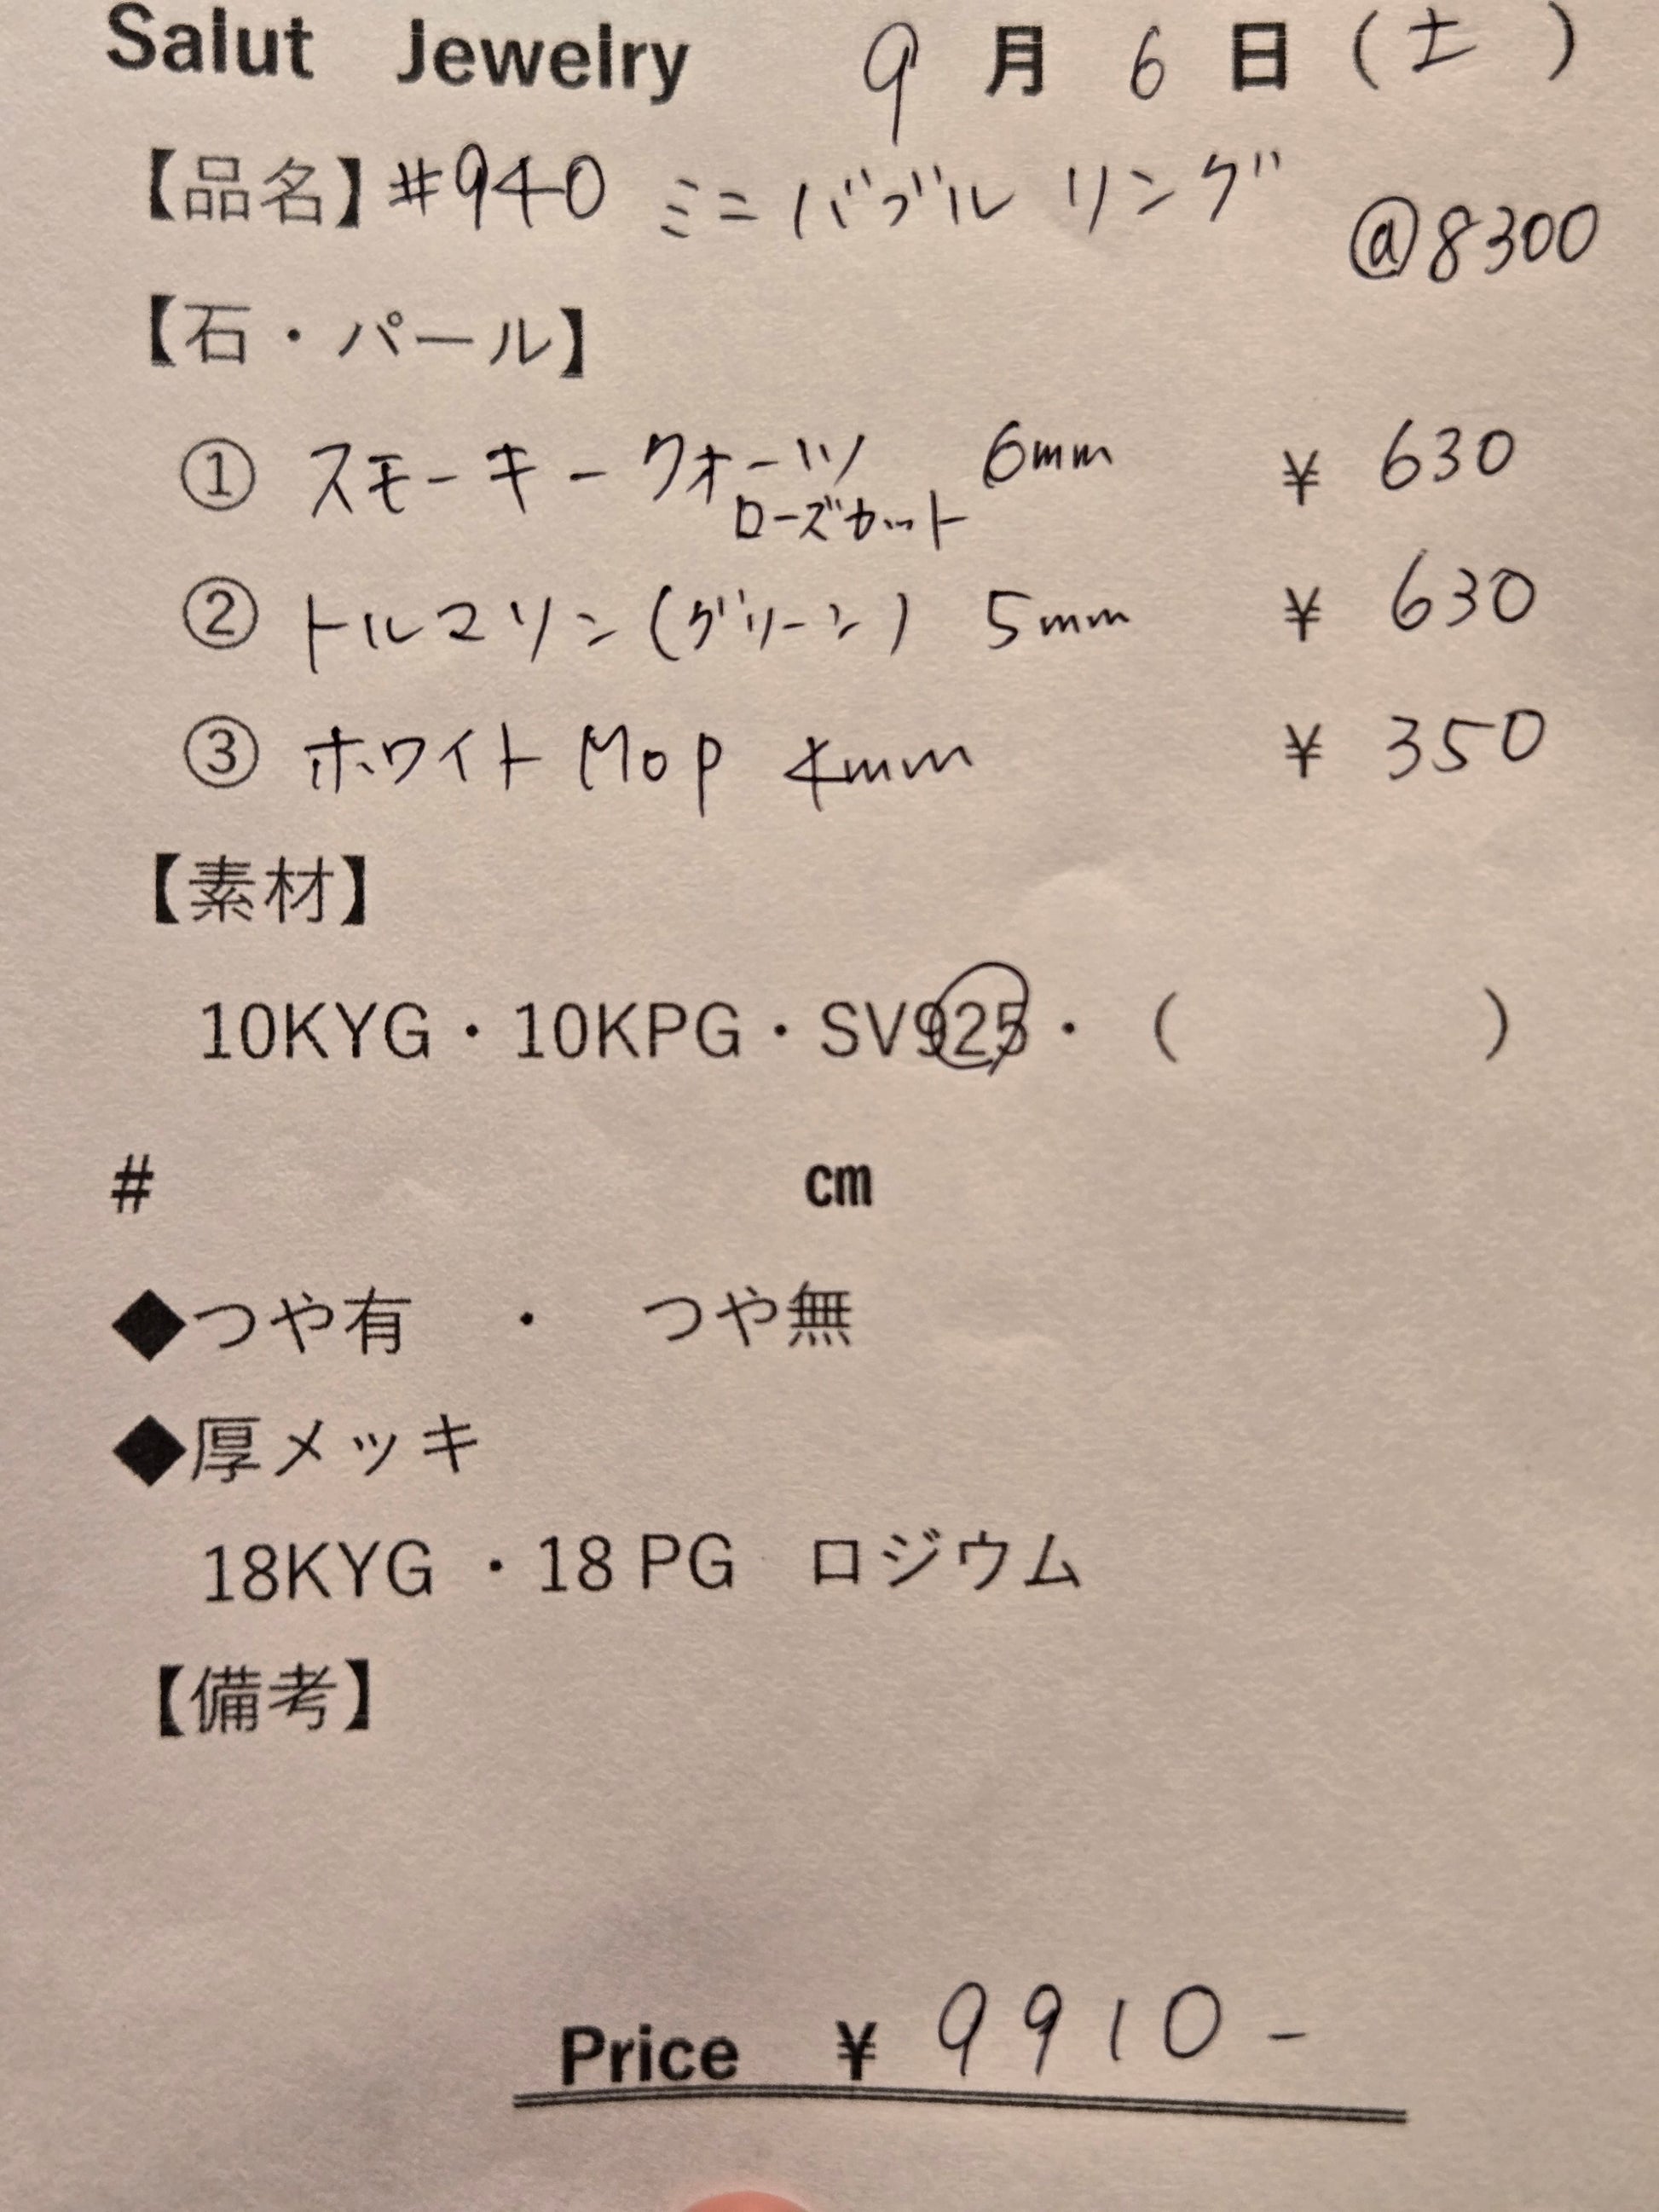 Salut Jewelry 9月6日(土)
【品名】#940 ミニバブルリング
@8300
【石・パール】
① スモーキークォーツ 6mm ¥630
ローズカット
② トルマリン(グリーン) 5mm ¥630
③ ホワイトMOP 4mm ¥350
【素材】
10KYG・10KPG・SV925・( )
# cm
◆つや有 ・ つや無
◆厚メッキ
18KYG ・18 PG ロジウム
【備考】
Price ¥9910-